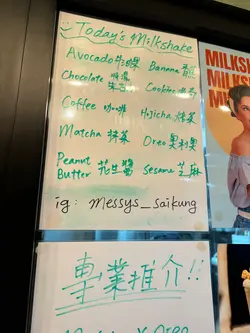 Today's Milkshake
Avocado 牛油果 Banana 香蕉
Chocolate 朱古力 Cookies
Coffee 咖啡 Hojicha 焙茶
Matcha 抹茶 Oreo 奧利奧
Peanut Butter 花生醬 Sesame 芝麻
ig: messys_saikung
專業推介!!
MILKSH
MILK
MI